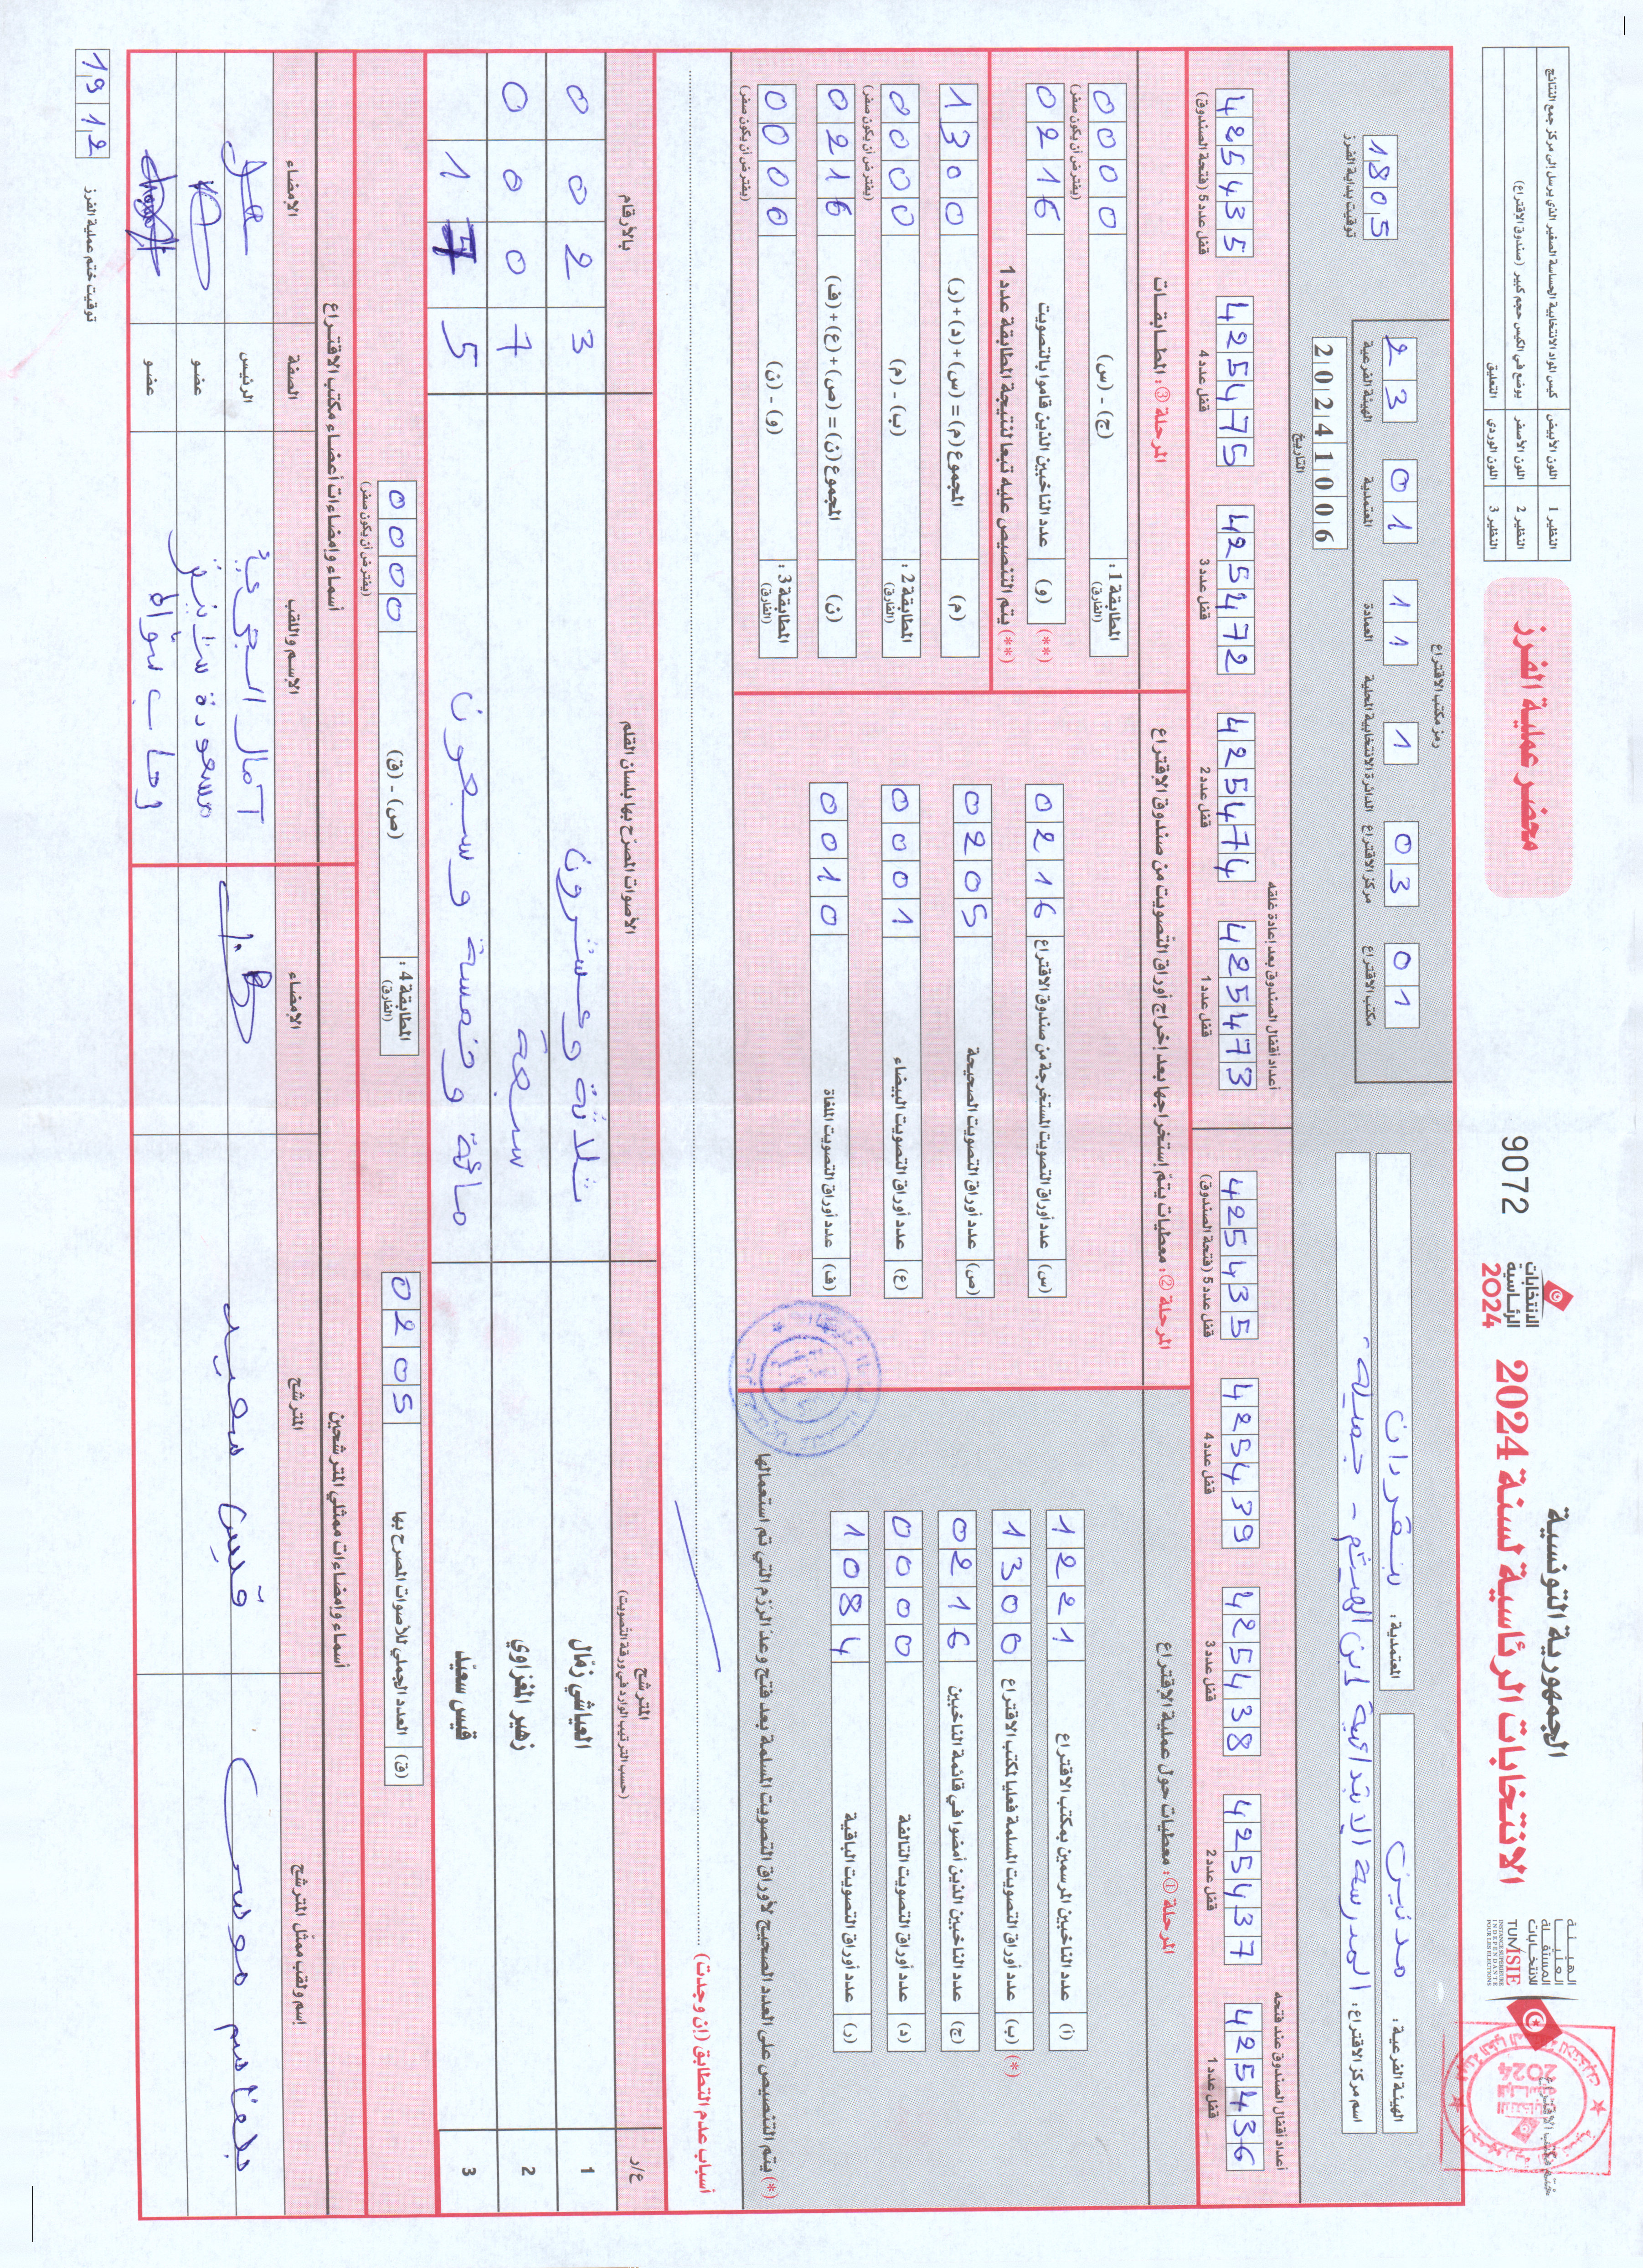 الجمهورية التونسية
الانتخابات الرئاسية لسنة 2024
الهيئة
العليا
المستقلة
للانتخابات
TUNISIE
INSTANCE SUPERIEURE
INDEPENDANTE
POUR LES ELECTIONS
الانتخابات
الرئاسية
2024
9072
محضر عملية الفرز
النظير 1 اللون الأبيض كيس المواد الانتخابية الحساسة الصغير الذي يرسل إلى مركز جمع النتائج
النظير 2 اللون الأصفر يوضع في الكيس حجم كبير (صندوق الاقتراع)
النظير 3 اللون الوردي التعليق
ختم مكتب الاقتراع
الهيئة الفرعية: مدنين
المعتمدية: بنقردان
اسم مركز الاقتراع: المدرسة الابتدائية ابن الهيثم - جميلة
رمز مكتب الاقتراع
23 01 11 1 03 01
الهيئة الفرعية المعتمدية العمادة الدائرة الانتخابية المحلية مركز الاقتراع مكتب الاقتراع
20241006
التاريخ
1805
توقيت بداية الفرز
أعداد أقفال الصندوق عند فتحه
425436 قفل عدد 1
425437 قفل عدد 2
425438 قفل عدد 3
425439 قفل عدد 4
425435 قفل عدد 5 (فتحة الصندوق)
أعداد أقفال الصندوق بعد إعادة غلقه
425473 قفل عدد 1
425474 قفل عدد 2
425472 قفل عدد 3
425475 قفل عدد 4
425435 قفل عدد 5 (فتحة الصندوق)
المرحلة ①: معطيات حول عملية الاقتراع
(أ) عدد الناخبين المرسمين بمكتب الاقتراع 1221
(*) (ب) عدد أوراق التصويت المسلمة فعليا لمكتب الاقتراع 1300
(ج) عدد الناخبين الذين أمضوا في قائمة الناخبين 0216
(د) عدد أوراق التصويت التالفة 0000
(ر) عدد أوراق التصويت الباقية 1084
(*) يتم التنصيص على العدد الصحيح لأوراق التصويت المسلمة بعد فتح وعد الرزم التي تم استعمالها
المرحلة ②: معطيات يتم إستخراجها بعد إخراج أوراق التصويت من صندوق الاقتراع
(س) عدد أوراق التصويت المستخرجة من صندوق الاقتراع 0216
(ص) عدد أوراق التصويت الصحيحة 0205
(ع) عدد أوراق التصويت البيضاء 0001
(ف) عدد أوراق التصويت الملغاة 0010
المرحلة ③: المطابقات
المطابقة 1: (الفارق) (ج) - (س) 0000
(يفترض أن يكون صفر)
(**) (و) عدد الناخبين الذين قاموا بالتصويت 0216
(**) يتم التنصيص عليه تبعا لنتيجة المطابقة عدد 1
(م) المجموع (م) = (س) + (د) + (ر) 1300
المطابقة 2: (الفارق) (ب) - (م) 0000
(يفترض أن يكون صفر)
(ن) المجموع (ن) = (ص) + (ع) + (ف) 0216
المطابقة 3: (الفارق) (و) - (ن) 0000
(يفترض أن يكون صفر)
أسباب عدم التطابق (إن وجدت)
ع/ر المترشح الأصوات المصرح بها بلسان القلم بالأرقام
(حسب الترتيب الوارد في ورقة التصويت)
1 العياشي زمّال ثلاثة وعشرون 0 0 2 3
2 زهير المغزاوي سبعة 0 0 0 7
3 قيس سعيّد مائة وخمسة وسبعون 1 7 5
(ق) العدد الجملي للأصوات المصرح بها 0205
المطابقة 4: (الفارق) (ص) - (ق) 0000
(يفترض أن يكون صفر)
أسماء وإمضاءات ممثلي المترشحين
إسم ولقب ممثل المترشح المترشح الإمضاء
قيس سعيد
أسماء وإمضاءات أعضاء مكتب الاقتراع
الإسم واللقب الصفة الإمضاء
آمال الرئيس
مسعودة عضو
رحاب عضو
1912
توقيت ختم عملية الفرز